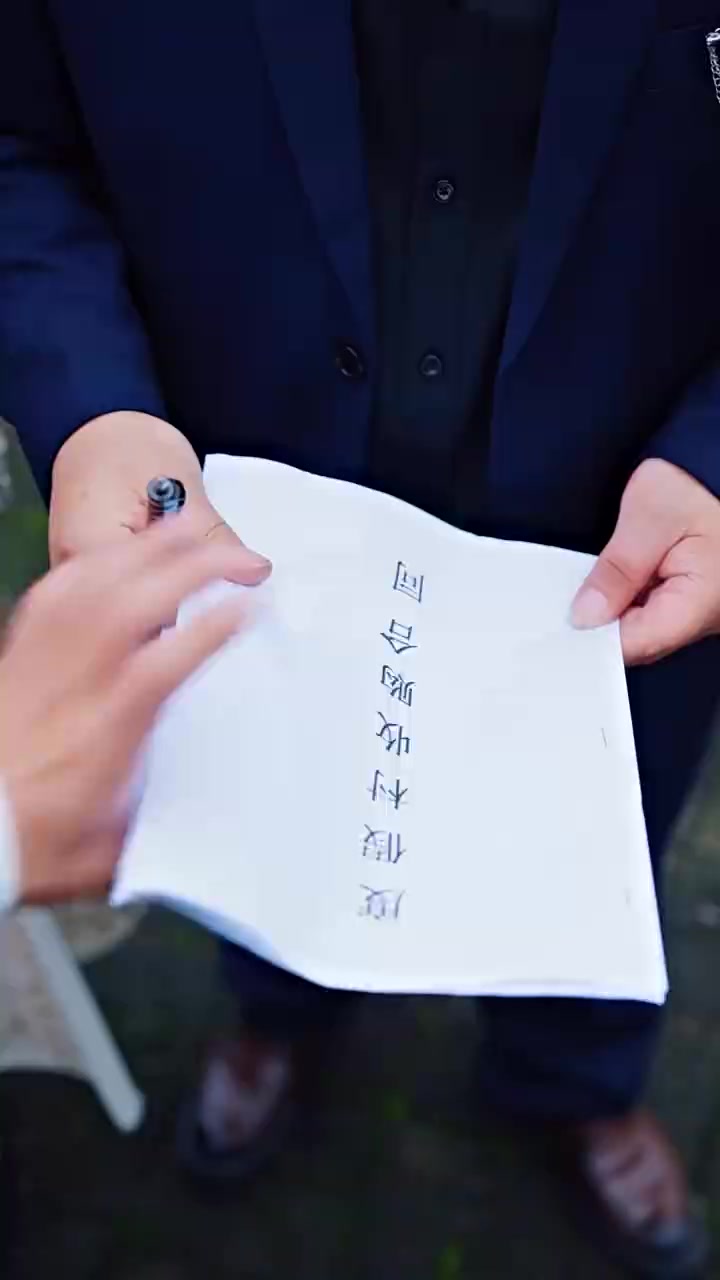 度假村收购合同